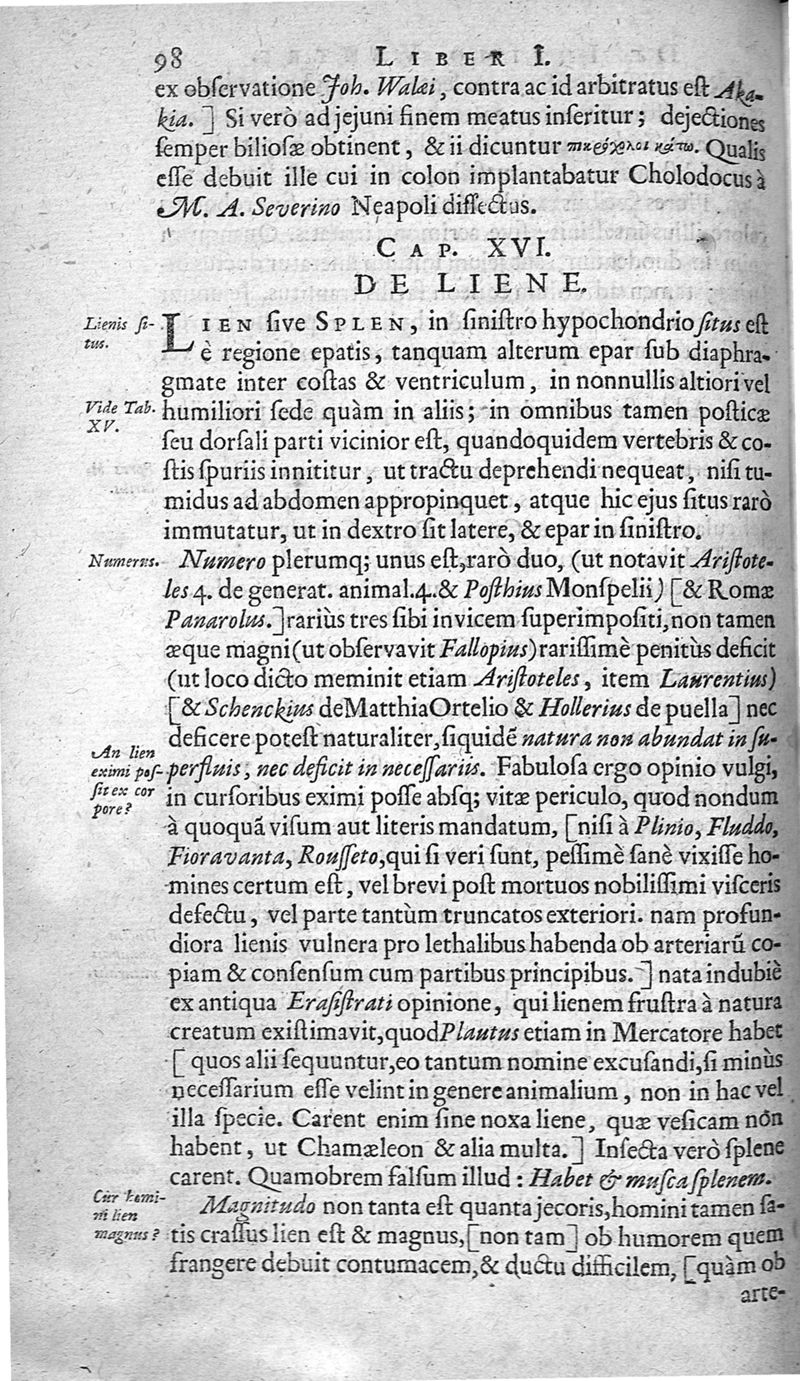 98 LIBER I.
ex obſervatione Joh. Walæi, contra ac id arbitratus eſt Aka-
kia.] Si verò ad jejuni finem meatus inſeritur; dejectiones
ſemper bilioſæ obtinent, & ii dicuntur πικρόχολοι κάτω. Qualis
eſſe debuit ille cui in colon implantabatur Cholodocus à
M. A. Severino Neapoli diſſectus.
CAP. XVI.
DE LIENE.
Lienis ſi-
tus.
LIEN ſive SPLEN, in ſiniſtro hypochondrio ſitus eſt
è regione epatis, tanquam alterum epar ſub diaphra-
gmate inter coſtas & ventriculum, in nonnullis altiori vel
Vide Tab.
XV.
humiliori ſede quàm in aliis; in omnibus tamen poſticæ
ſeu dorſali parti vicinior eſt, quandoquidem vertebris & co-
ſtis ſpuriis innititur, ut tractu deprehendi nequeat, niſi tu-
midus ad abdomen appropinquet, atque hic ejus ſitus rarò
immutatur, ut in dextro ſit latere, & epar in ſiniſtro.
Numerus.
Numero plerumq; unus eſt, rarò duo, (ut notavit Ariſtote-
les 4. de generat. animal. 4. & Poſthius Monſpelii) [& Romæ
Panarolus.] rariùs tres ſibi invicem ſuperimpoſiti, non tamen
æque magni (ut obſervavit Fallopius) rariſſimè penitùs deficit
(ut loco dicto meminit etiam Ariſtoteles, item Laurentius)
[& Schenckius de Matthia Ortelio & Hollerius de puella] nec
deficere poteſt naturaliter, ſiquidē natura non abundat in ſu-
An lien
eximi poſ-
ſit ex cor
pore?
perfluis, nec deficit in neceſſariis. Fabuloſa ergo opinio vulgi,
in curſoribus eximi poſſe abſq; vitæ periculo, quod nondum
à quoquā viſum aut literis mandatum, [niſi à Plinio, Fluddo,
Fioravanta, Rouſſeto, qui ſi veri ſunt, peſſimè ſanè vixiſſe ho-
mines certum eſt, vel brevi poſt mortuos nobiliſſimi viſceris
defectu, vel parte tantùm truncatos exteriori. nam profun-
diora lienis vulnera pro lethalibus habenda ob arteriarū co-
piam & conſenſum cum partibus principibus.] nata indubiè
ex antiqua Eraſiſtrati opinione, qui lienem fruſtra à natura
creatum exiſtimavit, quod Plautus etiam in Mercatore habet
[quos alii ſequuntur, eo tantum nomine excuſandi, ſi minùs
neceſſarium eſſe velint in genere animalium, non in hac vel
illa ſpecie. Carent enim ſine noxa liene, quæ veſicam non
habent, ut Chamæleon & alia multa.] Inſecta verò ſplene
carent. Quamobrem falſum illud: Habet & muſca ſplenem.
Cur homi-
ni lien
magnus?
Magnitudo non tanta eſt quanta jecoris, homini tamen ſa-
tis craſſus lien eſt & magnus, [non tam] ob humorem quem
frangere debuit contumacem, & ductu difficilem, [quàm ob
arte-